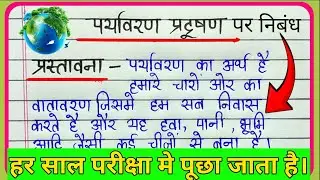 पर्यावरण प्रदूषण पर निबंध
प्रस्तावना - पर्यावरण का अर्थ है
हमारे चारों ओर का
वातावरण जिसमें हम सब निवास
करते है और यह हवा, पानी, भूमि
आदि जैसी कई चीजों से बना है।
हर साल परीक्षा मे पूछा जाता है।